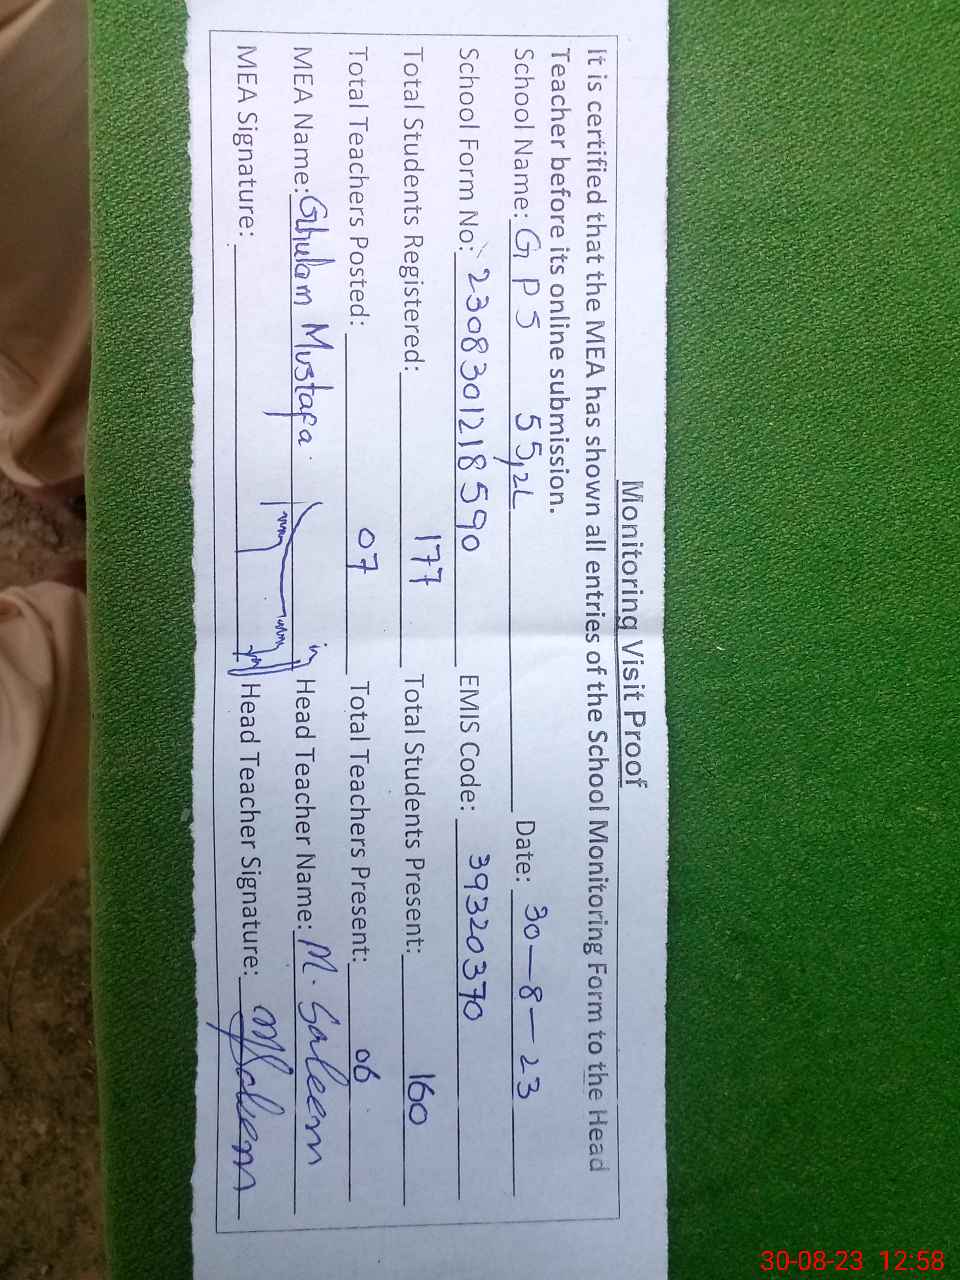 Monitoring Visit Proof
It is certified that the MEA has shown all entries of the School Monitoring Form to the Head
Teacher before its online submission.
School Name: G P S 55,2L Date: 30-8-23
School Form No: 2308301218590 EMIS Code: 39320370
Total Students Registered: 177 Total Students Present: 160
Total Teachers Posted: 07 Total Teachers Present: 06
MEA Name: Ghulam Mustafa Head Teacher Name: M. Saleem
MEA Signature: Head Teacher Signature: MSaleem
30-08-23 12:58